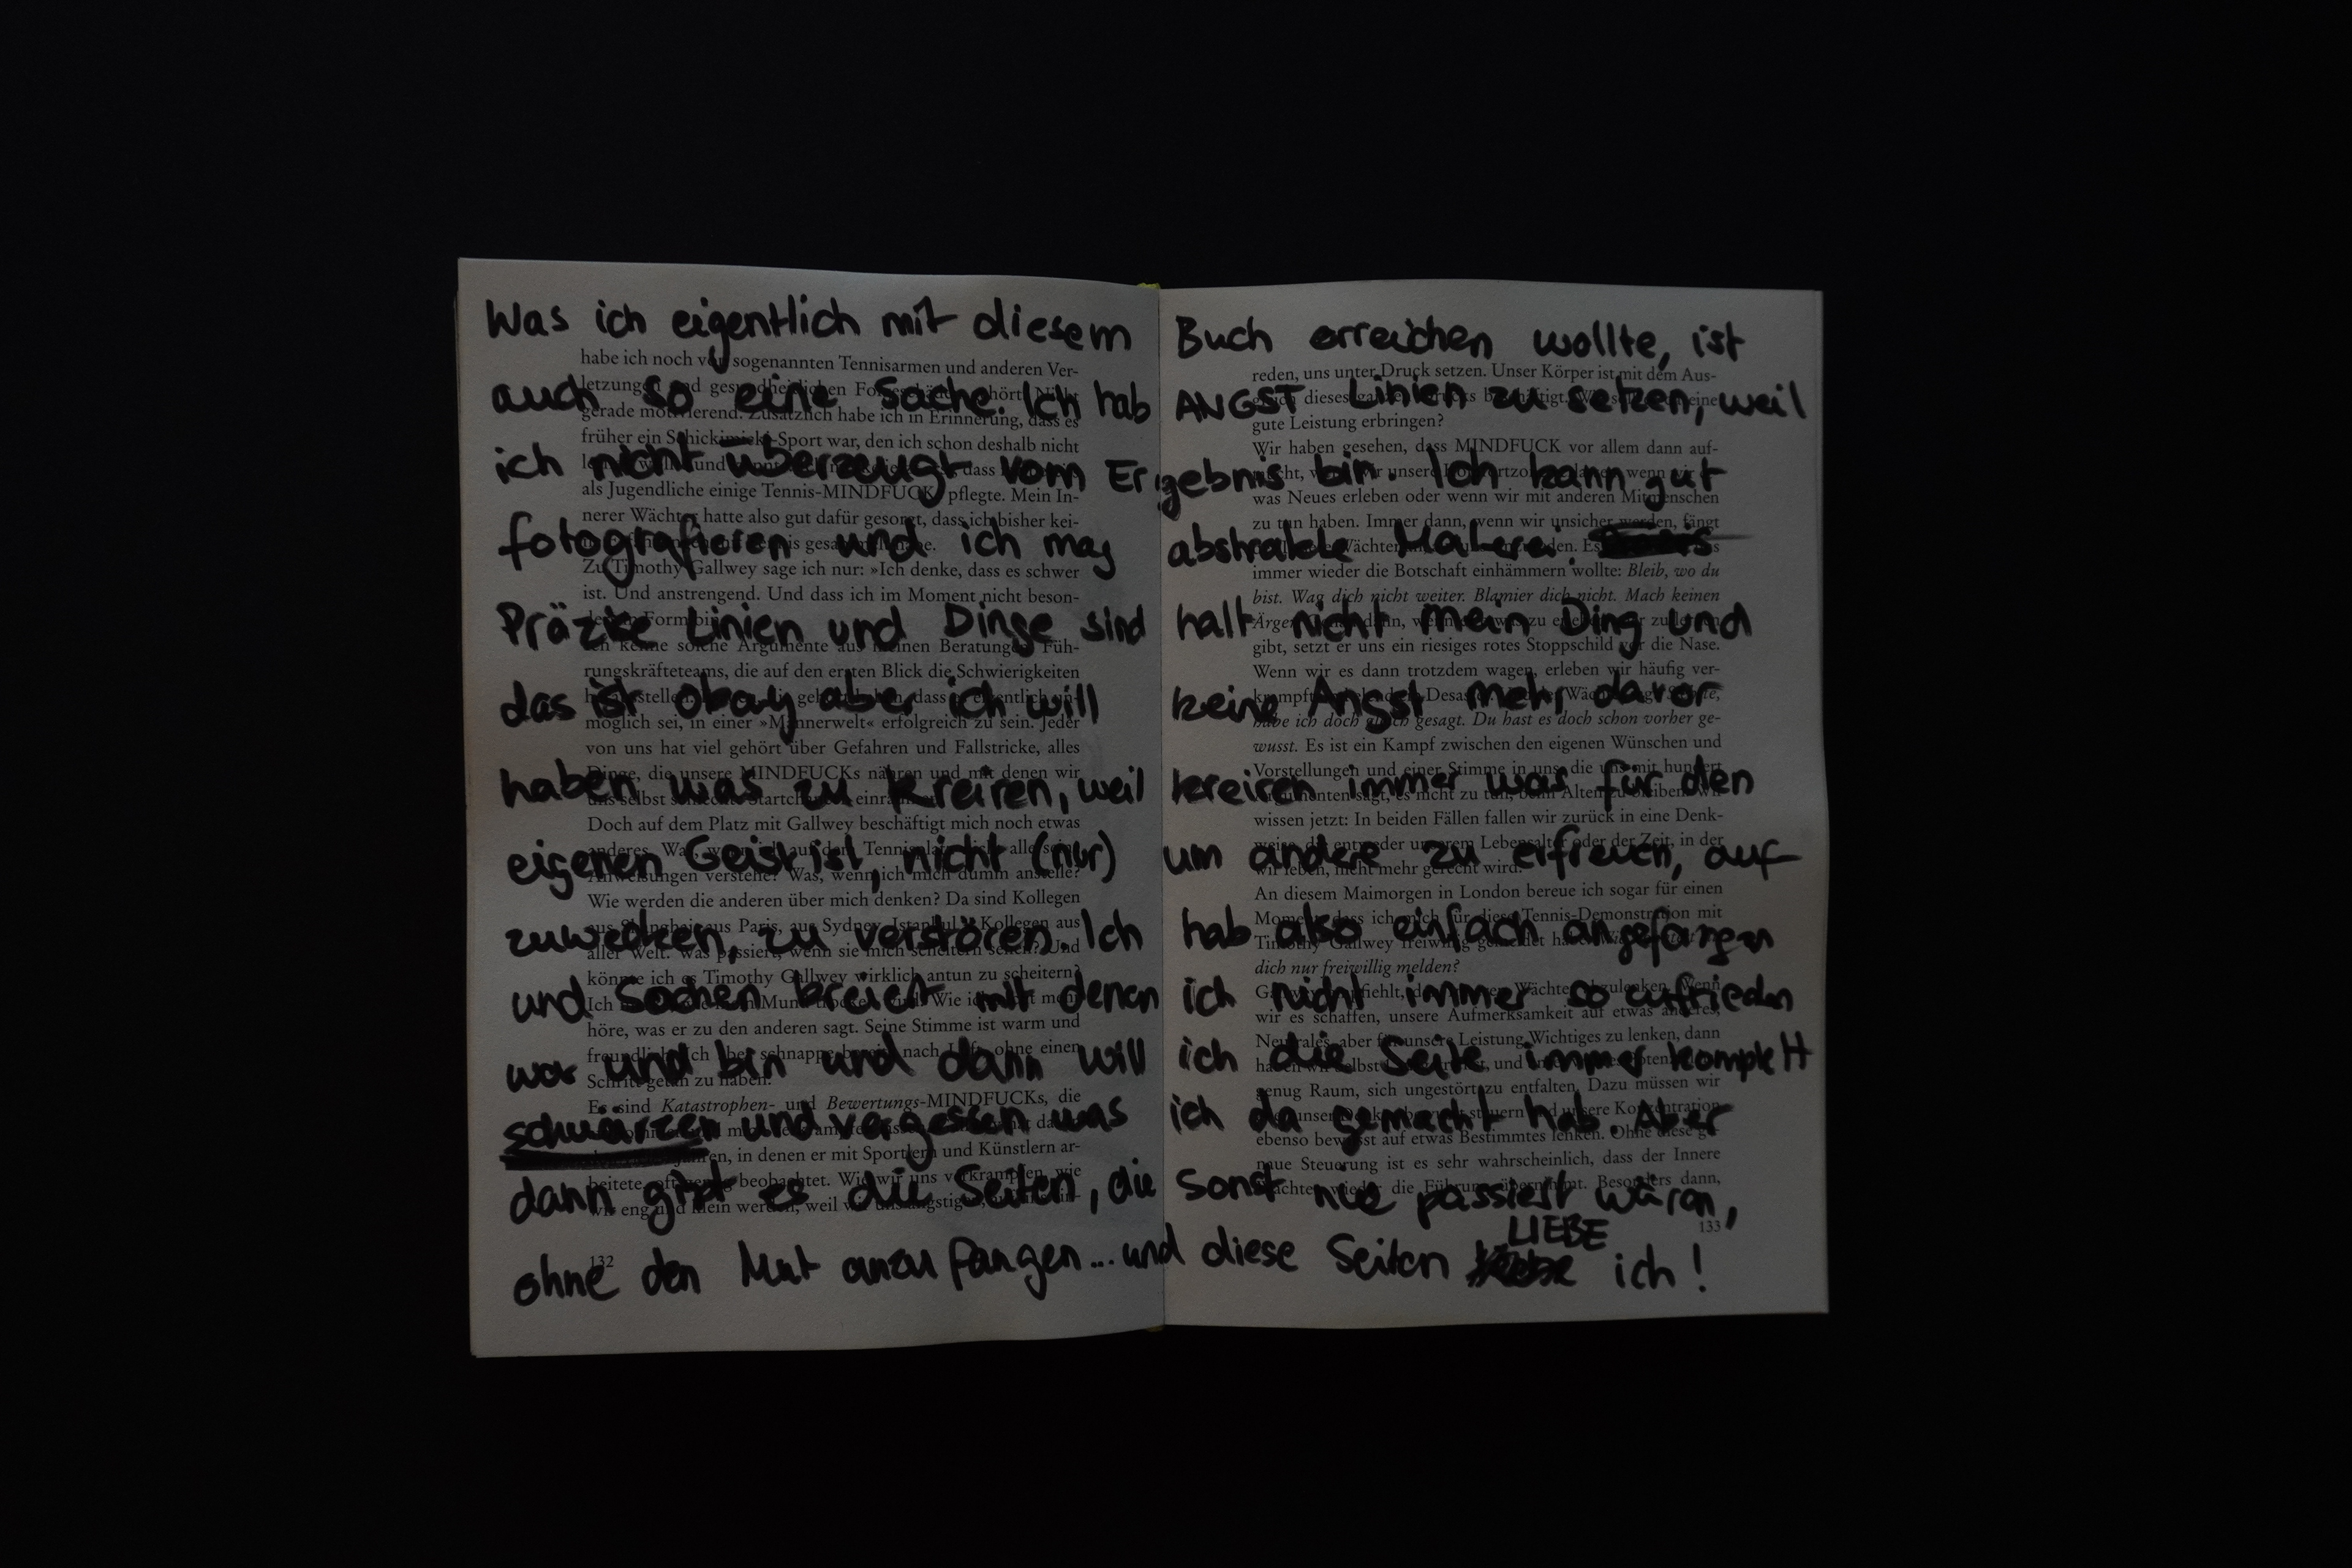 Was ich eigentlich mit diesem Buch erreichen wollte, ist
auch so eine Sache. Ich hab ANGST Linien zu setzen, weil
ich nicht überzeugt vom Ergebnis bin. Ich kann gut
fotografieren und ich mag abstrakte Malerei.
Präzise Linien und Dinge sind halt nicht mein Ding und
das ist okay aber ich will keine Angst mehr davor
haben was zu kreiren, weil kreiren immer was für den
eigenen Geist ist, nicht (nur) um andere zu erfreuen, auf
zuwecken, zu verstören. Ich hab also einfach angefangen
und Sachen kreiert mit denen ich nicht immer so zufrieden
war und bin und dann will ich die Seite immer komplett
schwärzen und vergessen was ich da gemacht hab. Aber
dann gibt es die Seiten, die sonst nie passiert wären,
ohne den Mut anzufangen... und diese Seiten LIEBE ich!
habe ich noch von sogenannten Tennisarmen und anderen Ver-
gerade motivierend. Zusätzlich habe ich in Erinnerung, dass es
früher ein Schickimicki-Sport war, den ich schon deshalb nicht
als Jugendliche einige Tennis-MINDFUCK pflegte. Mein In-
nerer Wächter hatte also gut dafür gesorgt, dass ich bisher kei-
Zu Timothy Gallwey sage ich nur: »Ich denke, dass es schwer
ist. Und anstrengend. Und dass ich im Moment nicht beson-
Ich kenne solche Argumente aus meinen Beratungen. Füh-
rungskräfteteams, die auf den ersten Blick die Schwierigkeiten
möglich sei, in einer »Männerwelt« erfolgreich zu sein. Jeder
von uns hat viel gehört über Gefahren und Fallstricke, alles
Dinge, die unsere MINDFUCKs nähren und mit denen wir
Doch auf dem Platz mit Gallwey beschäftigt mich noch etwas
Anweisungen verstehe? Was, wenn ich mich dumm anstelle?
Wie werden die anderen über mich denken? Da sind Kollegen
aus Shanghai, aus Paris, aus Sydney, Istanbul. Kollegen aus
aller Welt. Was passiert, wenn sie mich scheitern sehen? Und
könnte ich es Timothy Gallwey wirklich antun zu scheitern?
höre, was er zu den anderen sagt. Seine Stimme ist warm und
Schritt getan zu haben.
Es sind Katastrophen- und Bewertungs-MINDFUCKs, die
in denen er mit Sportlern und Künstlern ar-
132
reden, uns unter Druck setzen. Unser Körper ist mit dem Aus-
gute Leistung erbringen?
Wir haben gesehen, dass MINDFUCK vor allem dann auf-
was Neues erleben oder wenn wir mit anderen Mitmenschen
zu tun haben. Immer dann, wenn wir unsicher werden, fängt
immer wieder die Botschaft einhämmern wollte: Bleib, wo du
bist. Wag dich nicht weiter. Blamier dich nicht. Mach keinen
gibt, setzt er uns ein riesiges rotes Stoppschild vor die Nase.
Wenn wir es dann trotzdem wagen, erleben wir häufig ver-
habe ich doch gleich gesagt. Du hast es doch schon vorher ge-
wusst. Es ist ein Kampf zwischen den eigenen Wünschen und
Vorstellungen und einer Stimme in uns, die uns mit hundert
wissen jetzt: In beiden Fällen fallen wir zurück in eine Denk-
weise, die entweder unserem Lebensalter oder der Zeit, in der
wir leben, nicht mehr gerecht wird.
An diesem Maimorgen in London bereue ich sogar für einen
Moment, dass ich mich für diese Tennis-Demonstration mit
dich nur freiwillig melden?
wir es schaffen, unsere Aufmerksamkeit auf etwas anderes,
Neutrales, aber für unsere Leistung Wichtiges zu lenken, dann
genug Raum, sich ungestört zu entfalten. Dazu müssen wir
ebenso bewusst auf etwas Bestimmtes lenken. Ohne diese ge-
naue Steuerung ist es sehr wahrscheinlich, dass der Innere
Wächter wieder die Führung übernimmt. Besonders dann,
133